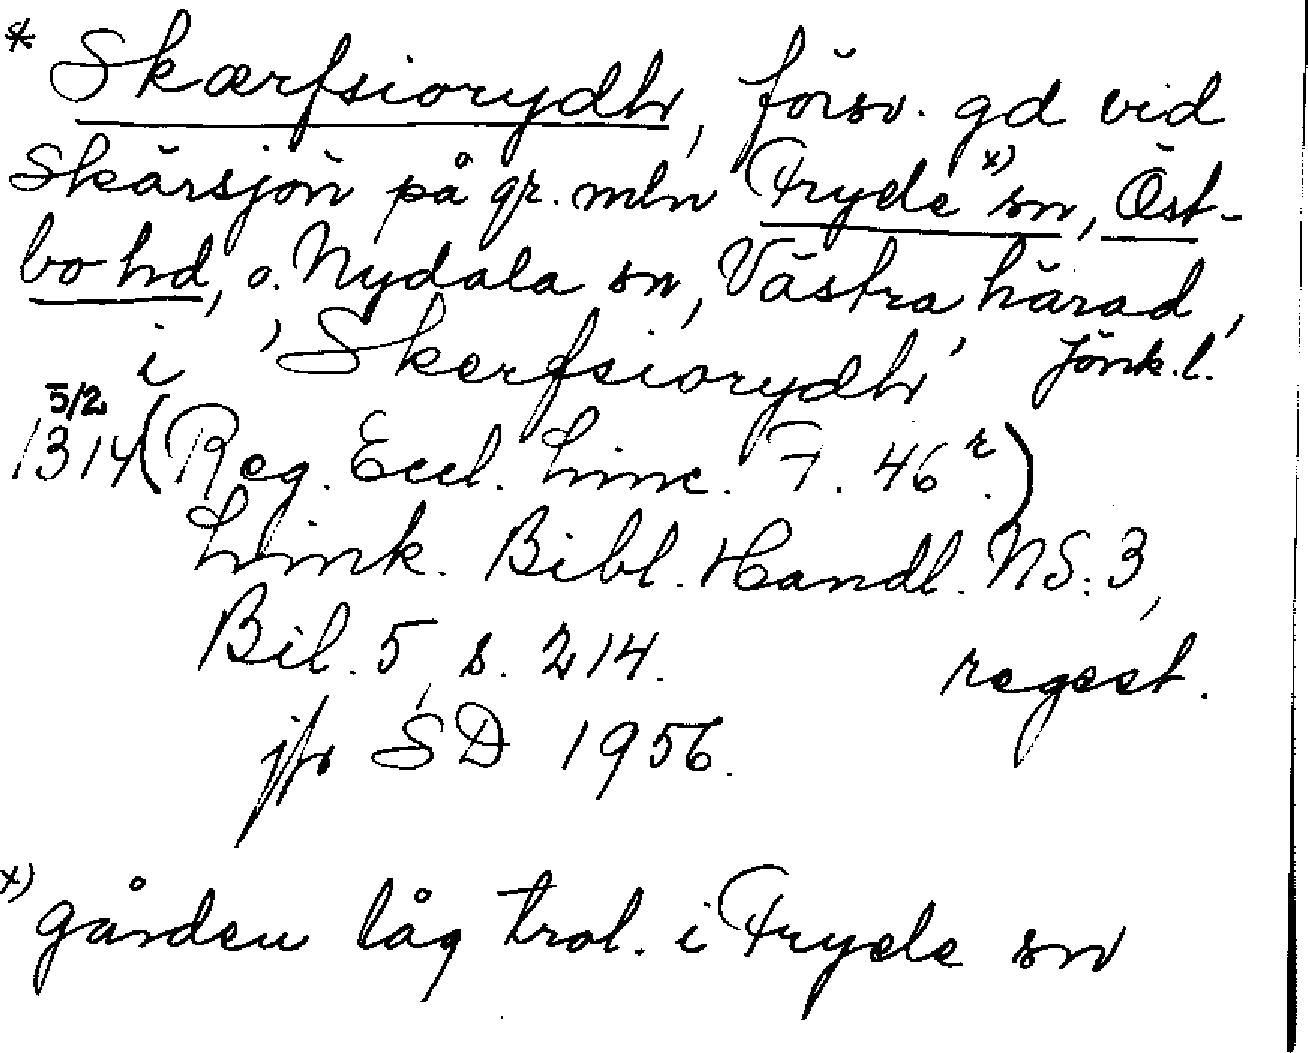 * Skærfsiorydhr, försv. gd vid
Skärsjön på gr. mln Fryele x) sn, Öst-
bo hd, o. Nydala sn, Västra härad,
i 'Skerfsiorydhr' Jönk.l.
5/2
1314 (Reg. Eccl. Linc. F. 46 r.)
Link. Bibl. Handl. NS. 3,
Bil. 5, s. 214. regest.
jfr SD 1956.
x) gården låg trol. i Fryele sn